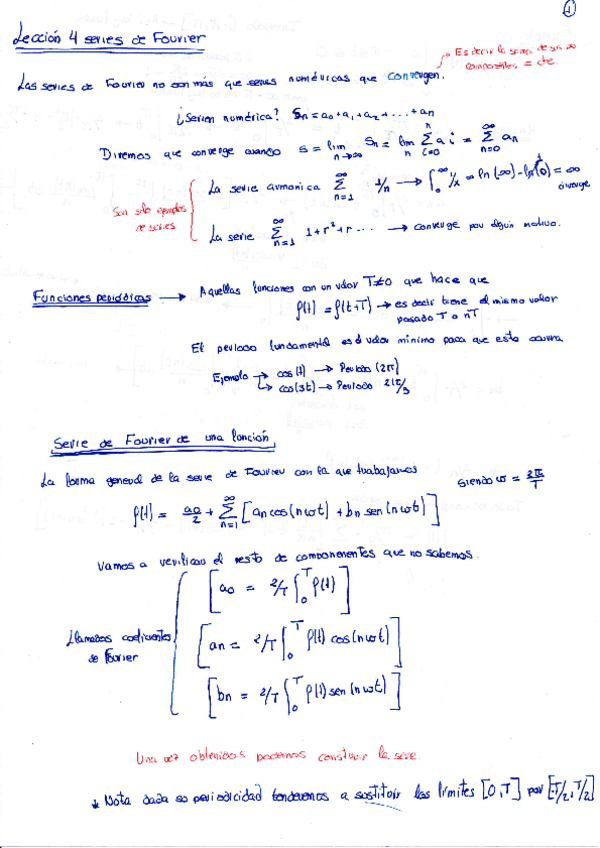 1
Lección 4 series de Fourier
Es decir la suma de sus ∞
componentes = cte.
Las series de Fourier no son más que series numéricas que convergen.
¿Serien numérica? Sn = a0 + a1 + a2 + ... + an
Diremos que converge cuando s = lim n→∞ Sn = lim n Σ n i=0 a i = Σ ∞ n=0 an
La serie armonica Σ ∞ n=1 1/n → ∫ 0 ∞ 1/x = ln(∞) - ln(0) = ∞
diverge
Son solo ejemplos
de series
La serie Σ ∞ n=1 1 + r² + r ... → converge por algun motivo.
Funciones periódicas → Aquellas funciones con un valor T≠0 que hace que
f(t) = f(t+T) → es decir tiene el mismo valor
pasado T o nT
El periodo fundamental es el valor minimo para que esto ocurra
Ejemplo → cos(t) → Periodo (2π)
→ cos(3t) → Periodo 2π/3
Serie de Fourier de una función
La forma general de la serie de Fourier con la que trabajamos
siendo ω = 2π/T
f(t) = a0/2 + Σ ∞ n=1 [an cos(nωt) + bn sen(nωt)]
Vamos a verificar el resto de componenentes que no sabemos.
[a0 = 2/T ∫ 0 T f(t)]
Llamados coeficientes
de Fourier
[an = 2/T ∫ 0 T f(t) cos(nωt)]
[bn = 2/T ∫ 0 T f(t) sen(nωt)]
Una vez obtenidos podemos construir la serie.
* Nota dada su periodicidad tenderemos a sustituir los límites [0,T] por [-T/2, T/2]